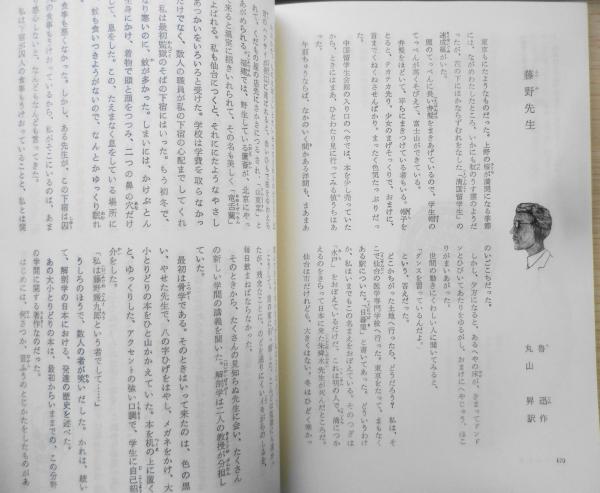 藤野先生
魯迅作
丸山昇訳
東京もにたようなものだった。上野の桜が満開になる季節
には、ながめわたしたところ、いかにも紅のうす雲のようだ
ったが、花の下にはかならずむれをなした「清国留学生」の
速成班がいた。
頭のてっぺんに長い弁髪をまきあげているので、学生帽の
てっぺんが高くそびえて、富士山ができている。
弁髪をほどいて、平らにまきつけている者もいる。帽子を
とると、テカテカ光り、少女のまげそっくりで、おまけに、
首までくねくねさせんばかり、まったく色気たっぷりだ。
中国留学生会館の入り口のへやでは、本を少し売っていた
から、ときにはまあ、ひとわたり見に行ってみる値うちはあ
午前ちゅうならば、なかのいく間かある洋間も、まあまあ
のいごこちだった。
しかし、夕方になると、あるへやの床が、きまってドンド
ンとひびいてあたりをゆるがし、おまけにへやじゅう、ほこ
りがまいあがった。
世間の動きにくわしい人に聞いてみると、
「ダンスを習っているんだよ。」
という、答えだった。
どこかが、ちがった土地へ行ったら、どうだろう。私は、そ
こで仙台の医学専門学校へ行った。東京をたって、まもなく
ある駅についた。「日暮里」と書いてあった。どういうわけ
か、私はいまでもこの名まえをおぼえている。そのつぎは
「水戸」をおぼえているだけだ。これは明の人で、清につか
えるのをきらって日本に来た朱舜水先生が死んだところだ。
仙台は市だけれども、大きくはない。冬はひどく寒かっ
れて、くだもの屋の店先にさかさにつるされ、「山東菜」と
よばれる。福建では、野生している蘆薈が、北京にやって
来ると温室に招きいれられて、その名も美しく「竜舌蘭」
よばれる。私も仙台につくと、それににたようなやさし
あつかいをいろいろと受けた。学校は学費を取らなかっ
だけでなく、数人の職員が私の下宿の心配までしてくれ
私は最初監獄のそばの下宿にはいった。もう初冬で、
なり寒いのに、蚊が多かった。しまいには、かけぶとん
身にかけ、着物で頭と顔をつつみ、二つの鼻の穴だけ
して、息をした。この、たえまなく息をしている場所に
蚊も食いつきようがないので、なんとかゆっくり眠れ
食事も悪くなかった。しかし、ある先生が、この下宿は囚
の食事もうけおっているから、私がそこにいるのは、あま
心しないと、なんどもなんども言ってきた。
私は、下宿が囚人の食事もうけおっていることと、私とは関
毎日飲まねばならなかった。
そのときから、たくさんの見知らぬ先生に会い、たくさん
の新しい学問の講義を聞いた。解剖学は二人の教授が分担し
ていた。
最初は骨学である。そのときはいって来たのは、色の黒
い、やせた先生で、八の字ひげをはやし、メガネをかけ、大
小とりどりの本をひと山かかえていた。本を机の上に置く
と、ゆっくりした、アクセントの強い口調で、学生に自己紹
介をした。
「私は藤野厳九郎という者でして……」
うしろのほうで、数人の者が笑いだした。かれは、続い
て、解剖学の日本における、発達の歴史を述べた。
あの大小とりどりの本は、最初からいままでの、この分野
の学問に関する著作なのだった。
はじめには、何さつか、唐ふうのとじかたをしたものがあ